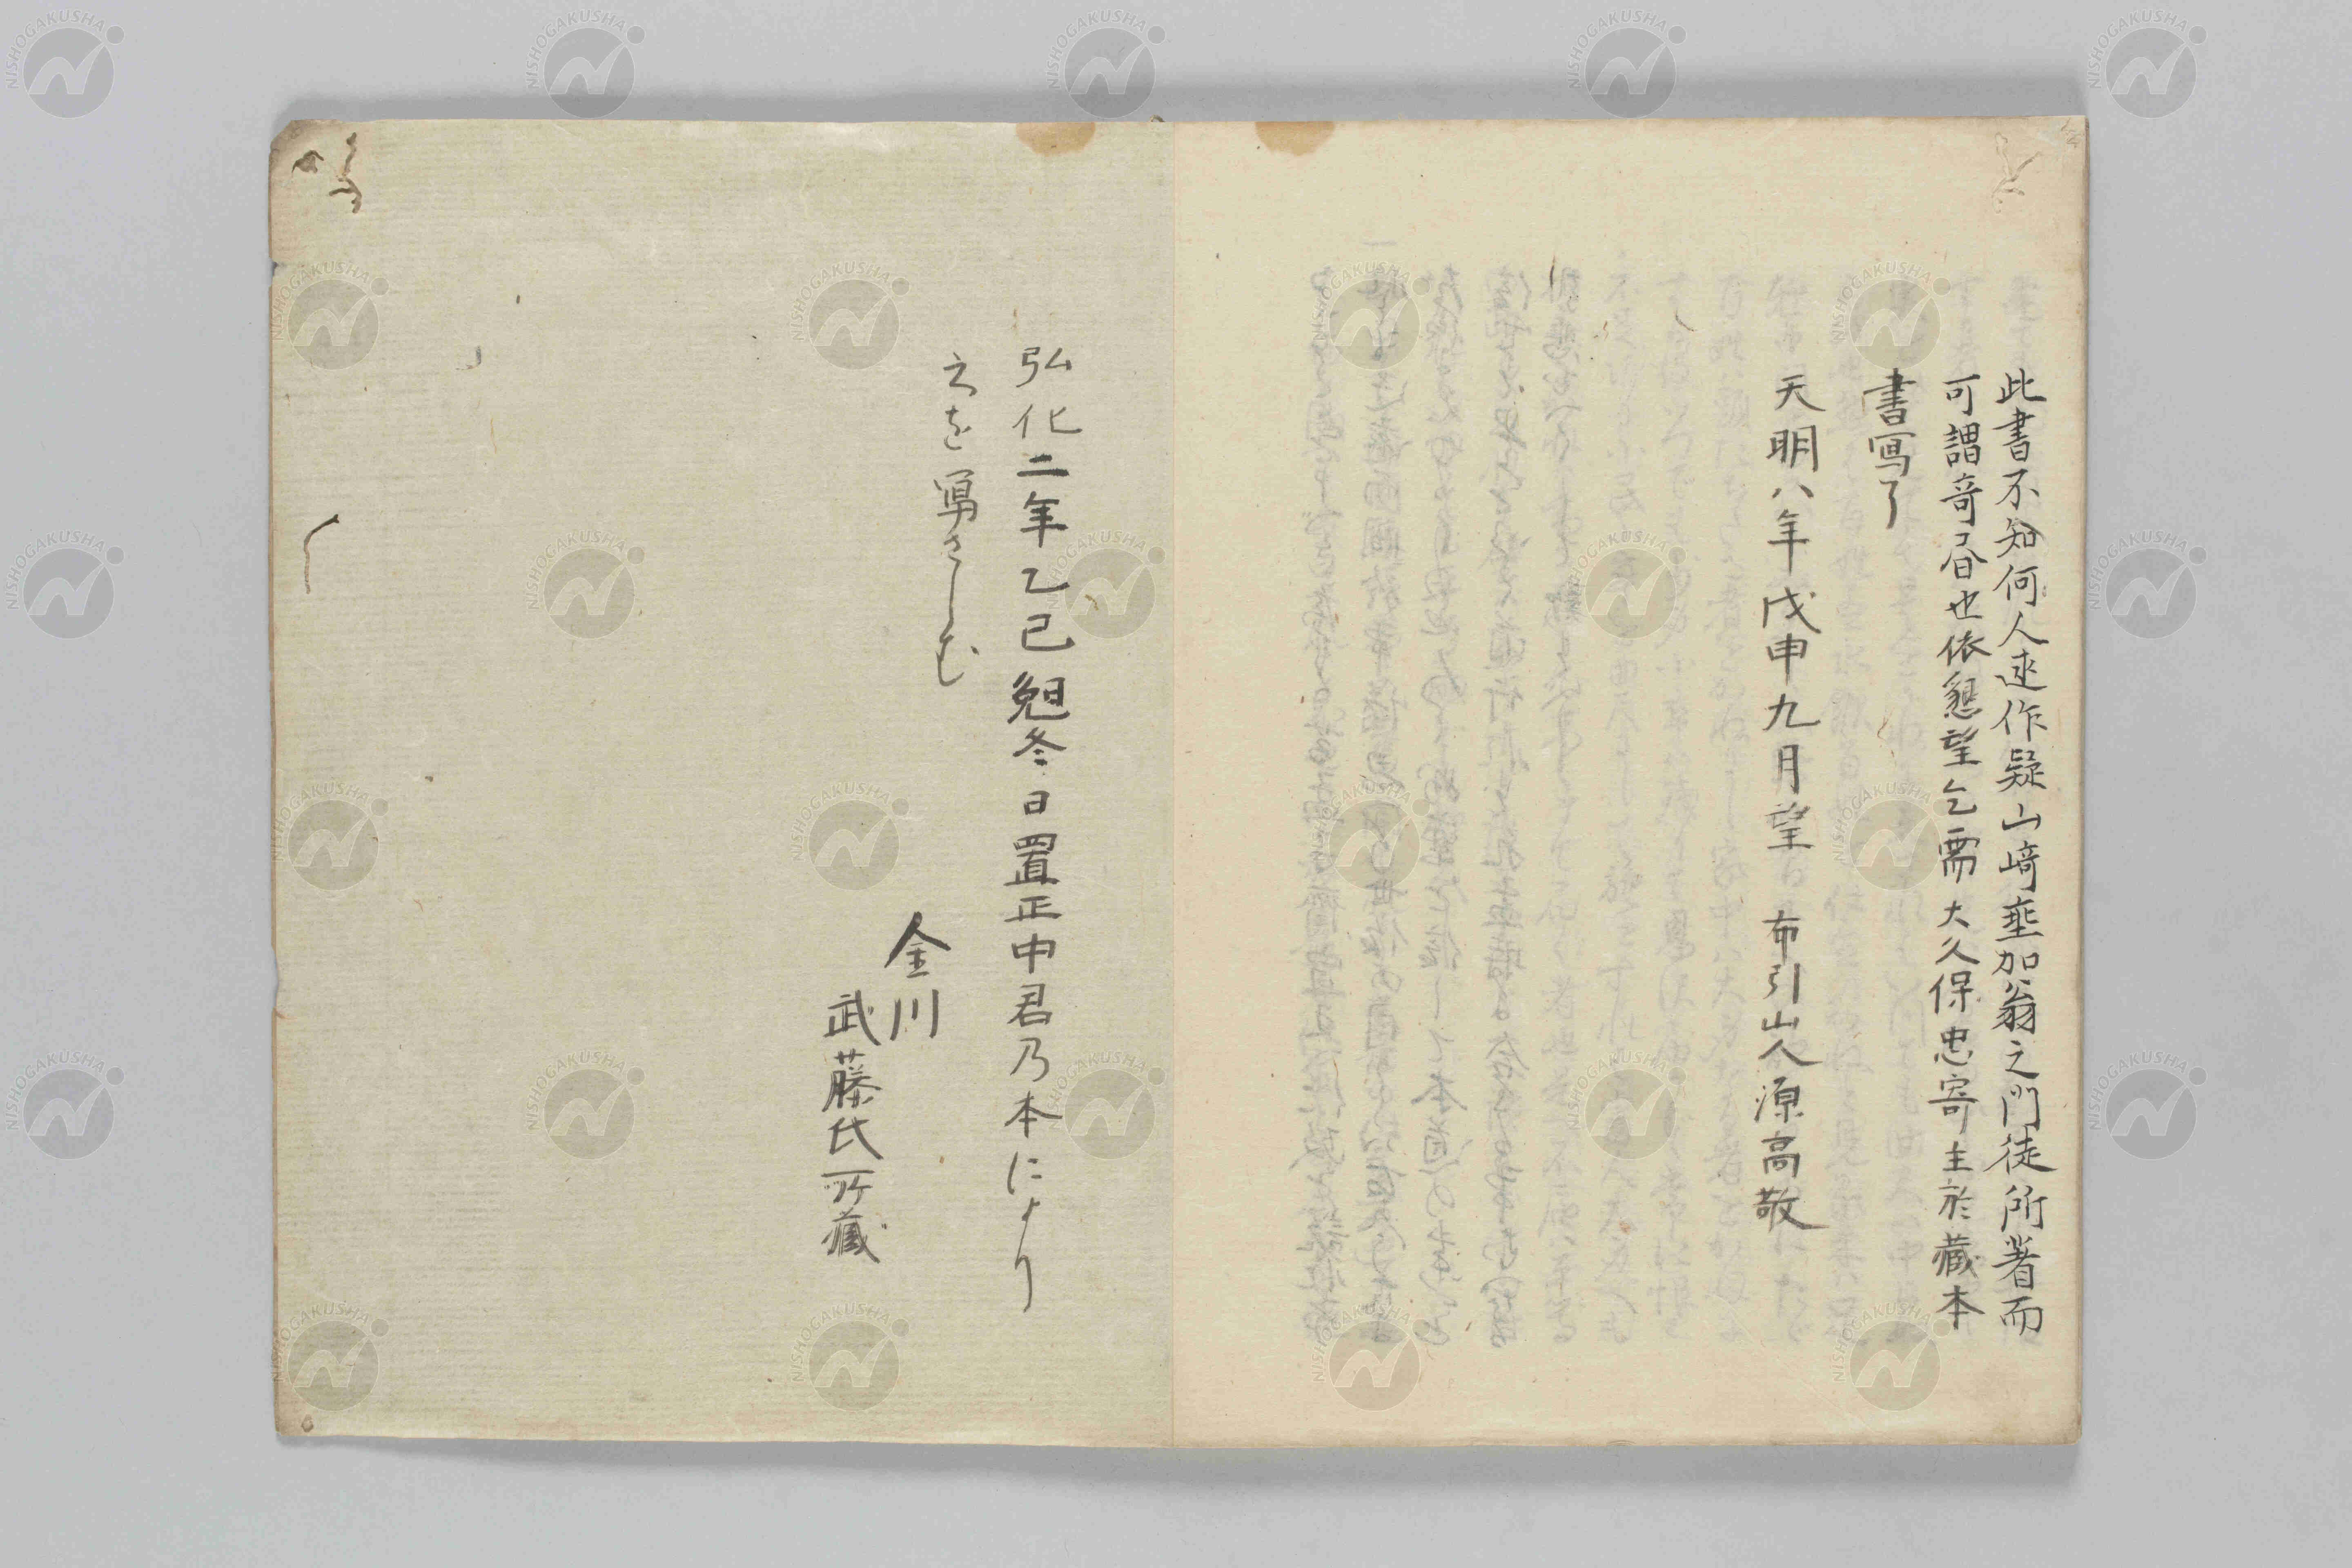 此書不知何人述作疑山﨑垂加翁之門徒所著而
可謂奇㫪也依懇望乞需大久保忠寄主於藏本
書寫了
天明八年戊申九月望 布引山人源高敬
弘化二年乙巳 冬日置正中君乃本により
之を寫さしむ
金川
武藤氏所藏
NISHOGAKUSHA